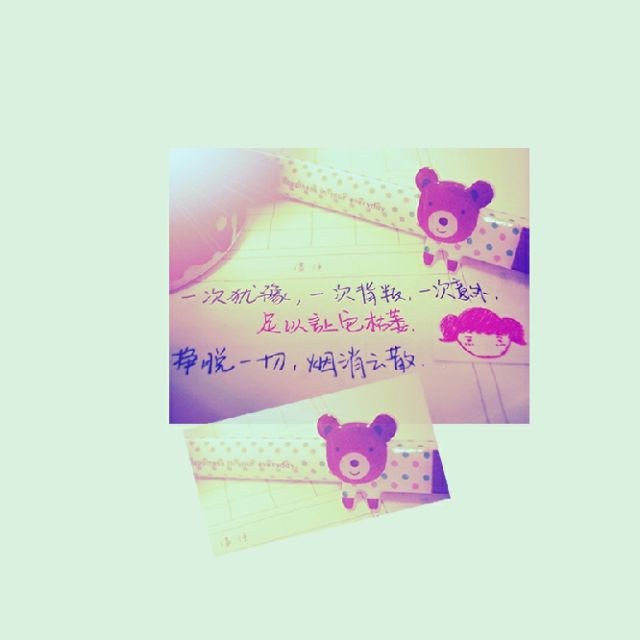 一次犹豫，一次背叛，一次意外，
足以让它枯萎．
挣脱一切，烟消云散．